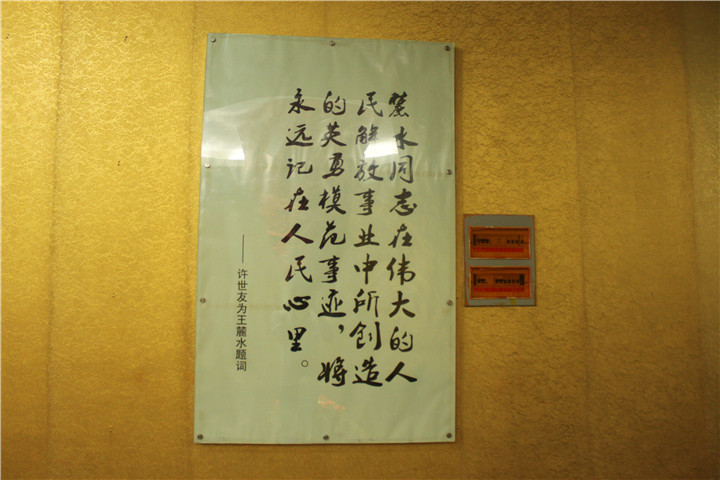 麓水同志在伟大的人
民解放事业中所创造
的英勇模范事迹，将
永远记在人民心里。
——许世友为王麓水题词